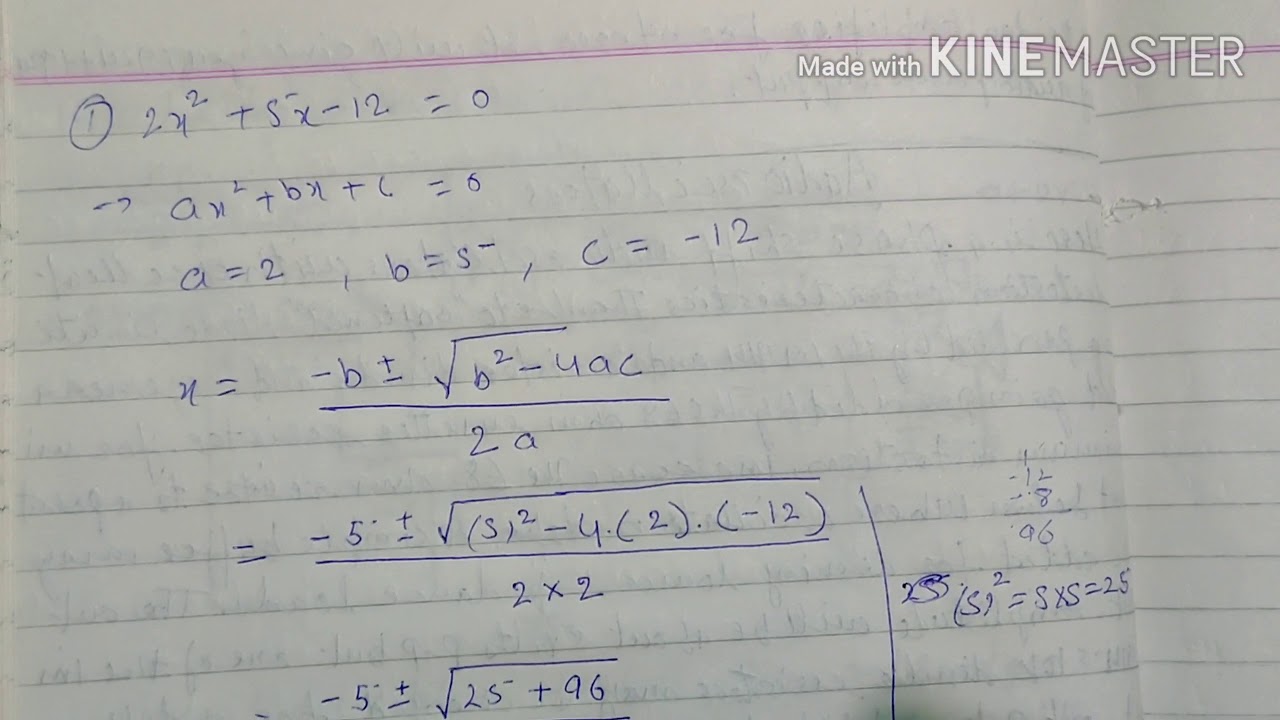 Made with KINEMASTER
① 2x² + 5x - 12 = 0
→ ax² + bx + c = 0
a = 2 , b = 5 , c = -12
x = -b ± √b² - 4ac
2a
= -5 ± √(5)² - 4.(2).(-12)
2 × 2
-5 ± √25 + 96
1
-12
-8
96
(5)² = 5×5 = 25